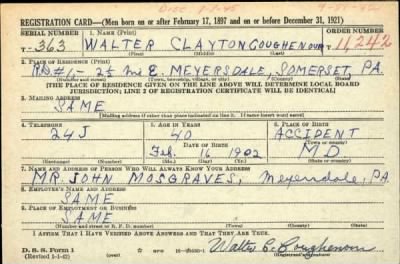 REGISTRATION CARD—(Men born on or after February 17, 1897 and on or before December 31, 1921)
SERIAL NUMBER 1. NAME (Print) ORDER NUMBER
T-363 WALTER CLAYTON COUGHENOUR 11,242
2. PLACE OF RESIDENCE (Print)
RD#1- 2½ mi E. MEYERSDALE, SOMERSET, PA.
(Number and street) (Town, township, village, or city) (County) (State)
[THE PLACE OF RESIDENCE GIVEN ON THE LINE ABOVE WILL DETERMINE LOCAL BOARD
JURISDICTION; LINE 2 OF REGISTRATION CERTIFICATE WILL BE IDENTICAL]
3. MAILING ADDRESS
SAME
[Mailing address if other than place indicated on line 2. If same insert word same]
4. TELEPHONE 5. AGE IN YEARS 6. PLACE OF BIRTH
24J 40 ACCIDENT
DATE OF BIRTH (Town or county)
Feb. 16 1902 MD
(Mo.) (Day) (Yr.) (State or country)
7. NAME AND ADDRESS OF PERSON WHO WILL ALWAYS KNOW YOUR ADDRESS
MR. JOHN MOSGRAVES, Meyersdale, PA
8. EMPLOYER'S NAME AND ADDRESS
SAME
9. PLACE OF EMPLOYMENT OR BUSINESS
SAME
(Number and street or R. F. D. number) (Town) (County) (State)
I AFFIRM THAT I HAVE VERIFIED ABOVE ANSWERS AND THAT THEY ARE TRUE.
D. S. S. Form 1
(Revised 1-1-42)
Walter C. Coughenour